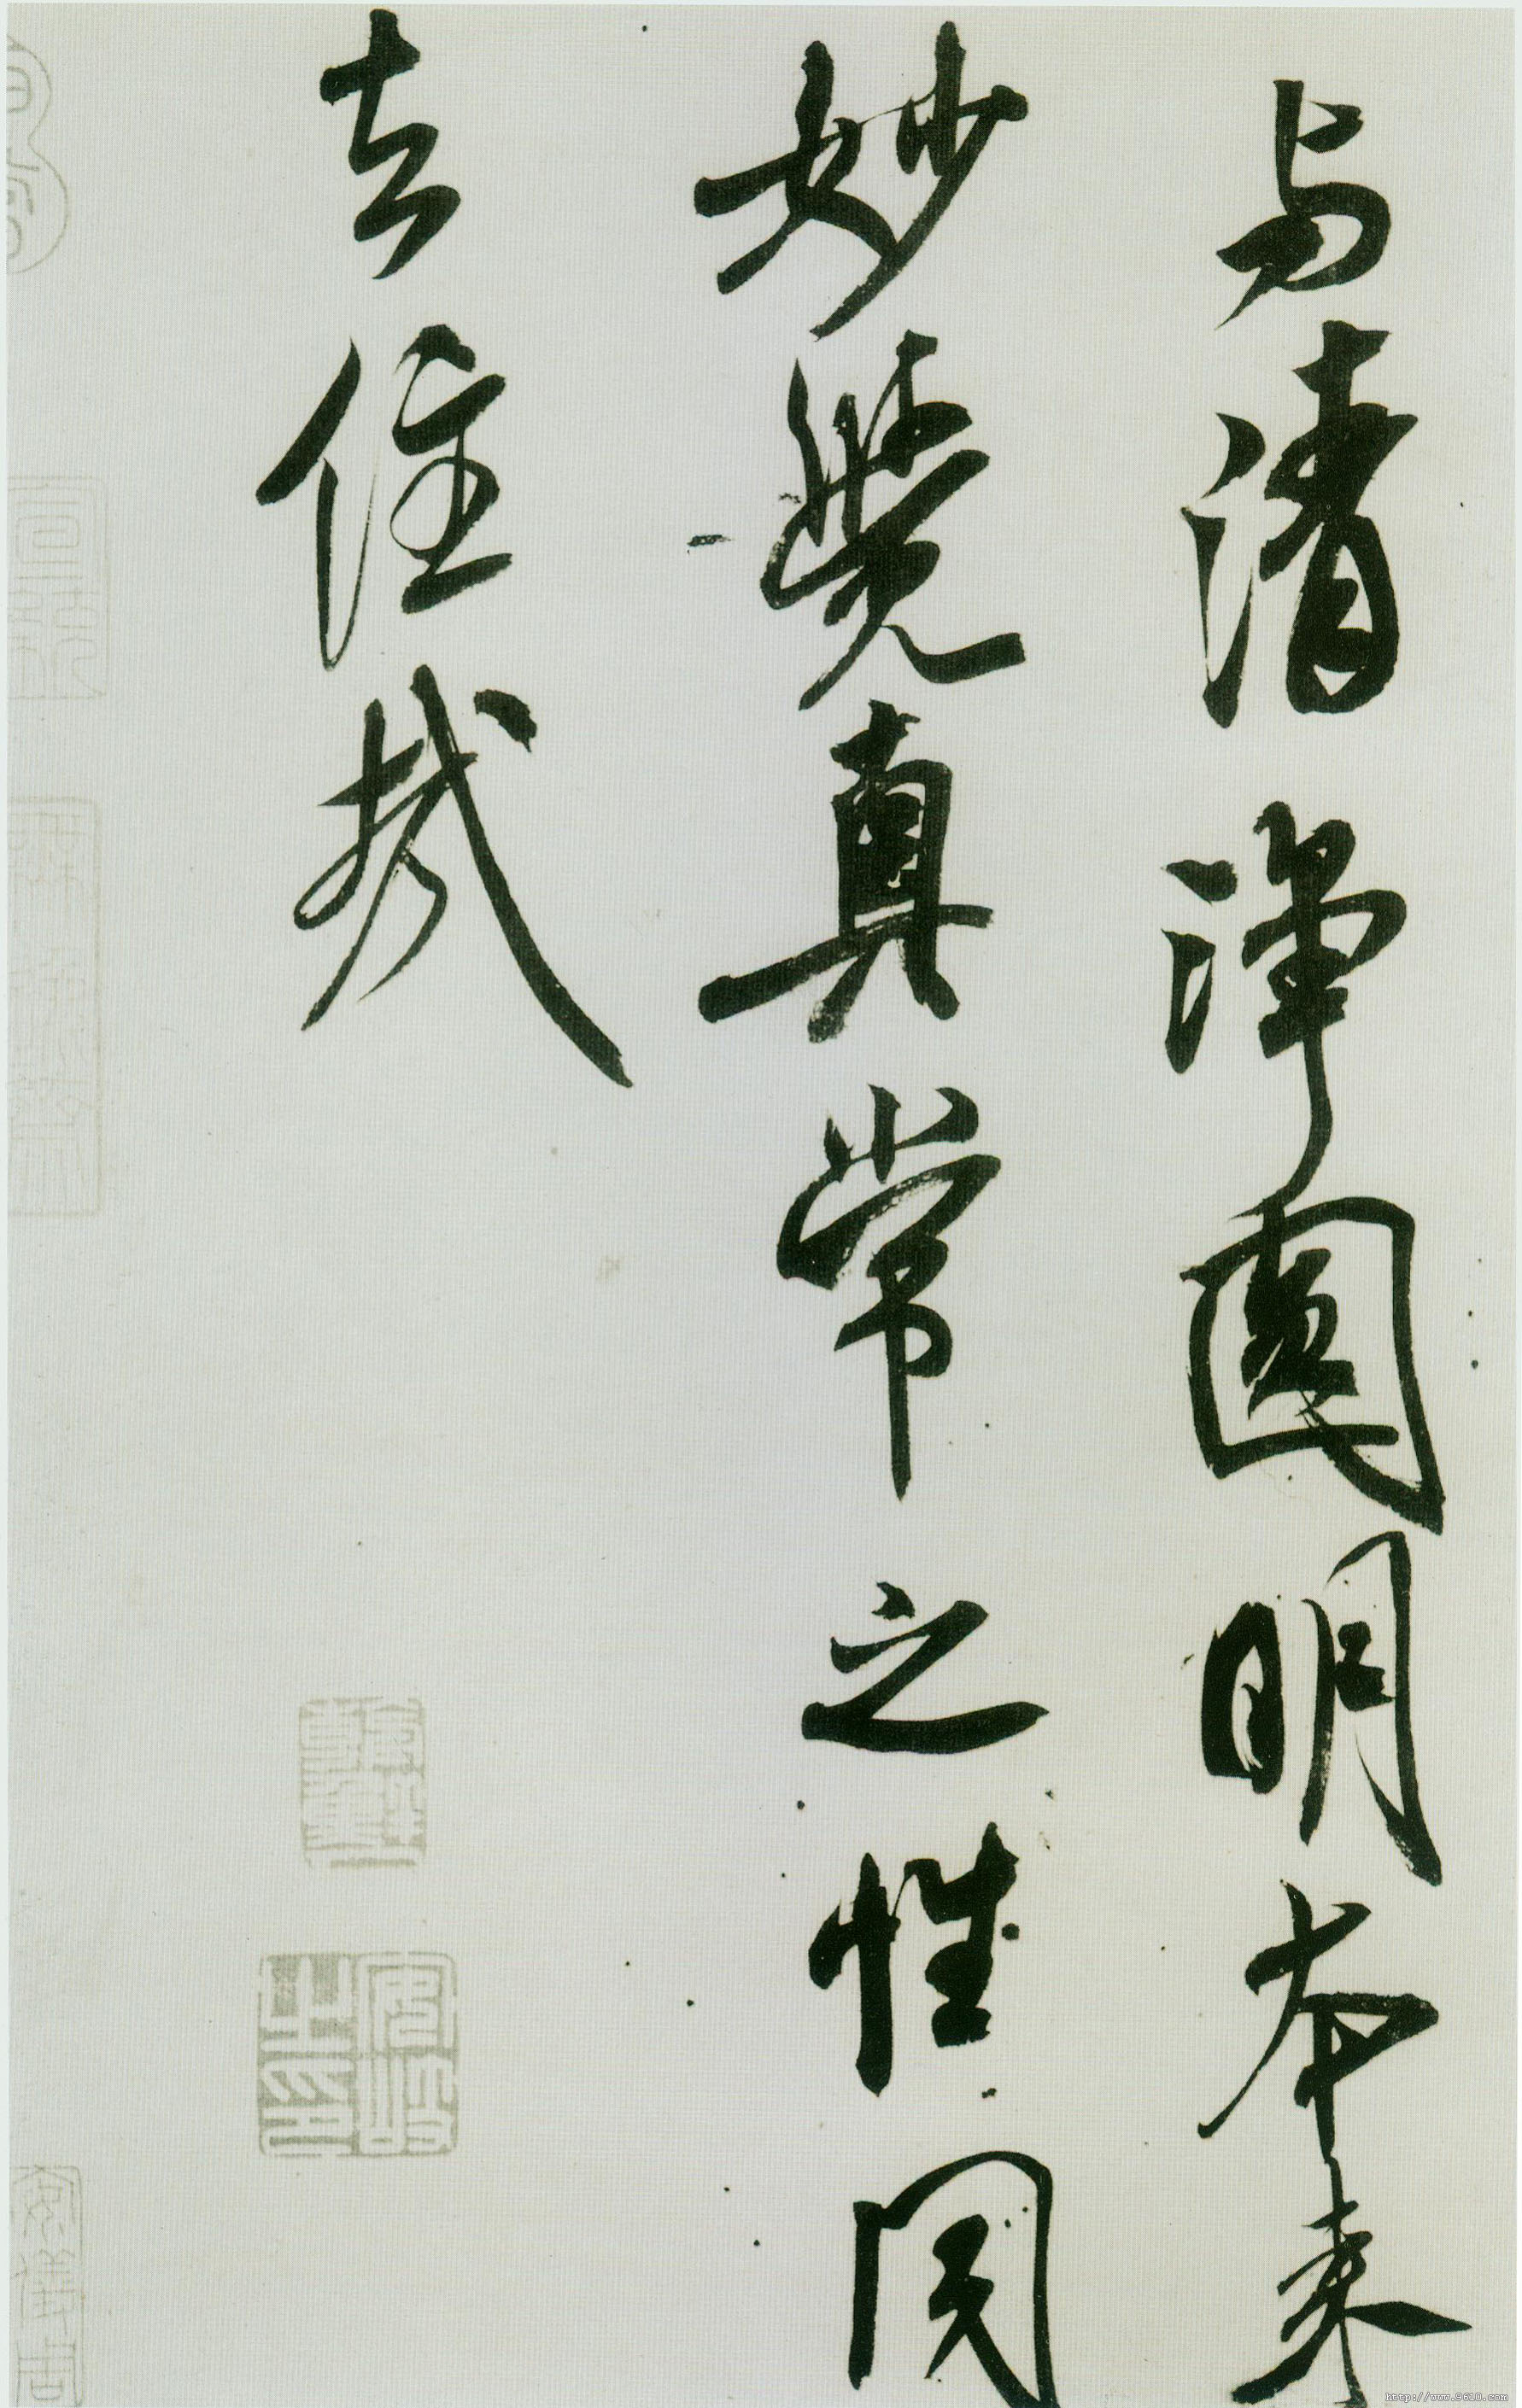 与清淨圓明本来
妙覺真常之性同
去住哉
http://www.9610.com